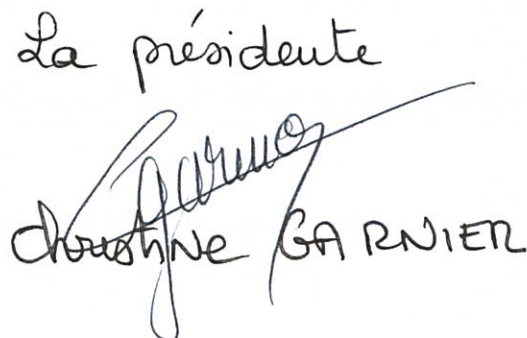 La présidente
Christine GARNIER